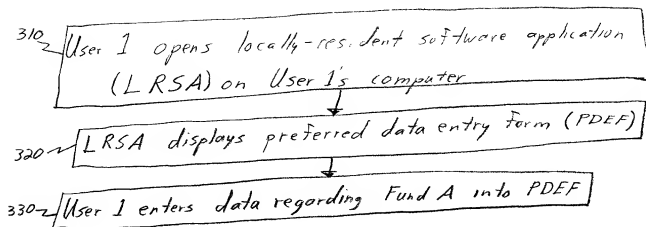 310
User 1 opens locally-resident software application
(LRSA) on User 1's computer
320
LRSA displays preferred data entry form (PDEF)
330
User 1 enters data regarding Fund A into PDEF